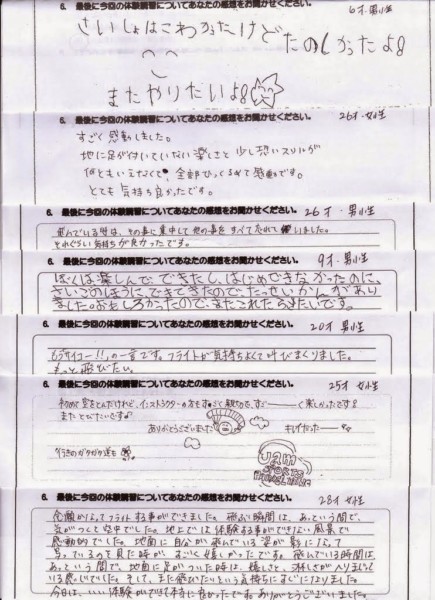 6. 最後に今回の体験講習についてあなたの感想をお聞かせください。 6才・男性
さいしょはこわかったけど
たのしかったよ!
またやりたいよ!
6. 最後に今回の体験講習についてあなたの感想をお聞かせください。 26才・女性
すごく感動しました。
地に足が付いていない楽しさと少し恐いスリルが
何ともいえなくて 全部ひっくるめて感動です。
とても気持ち良かったです。
6. 最後に今回の体験講習についてあなたの感想をお聞かせください。 26才・男性
飛んでいる時は、その事に集中して他の事をすべて忘れていました。
それぐらい気持ちが良かったです。
6. 最後に今回の体験講習についてあなたの感想をお聞かせください。 9才・男性
ぼくは楽しんでできたし、はじめできなかったのに、
さいごのほうにできてきたので、たっせいかんがあり
ました。おもしろかったので、またこれたらきたいです。
6. 最後に今回の体験講習についてあなたの感想をお聞かせください。 20才 男性
もうサイコー!!の一言です。フライトが気持ちよくて叫びまくりました。
もっと飛びたい。
6. 最後に今回の体験講習についてあなたの感想をお聞かせください。 25才 女性
初めて空をとんだけれど、インストラクターの方もすごく親切で、すごーーーく楽しかったです!
またとびたいです
ありがとうございました
キレイだったー
行きのガタガタ道も
6. 最後に今回の体験講習についてあなたの感想をお聞かせください。 28才 女性
念願かなってフライトする事ができました。飛ぶ瞬間は、あっという間で、
気がつくと空中でした。地上では体験する事ができない風景で
感動的でした。地面に自分が飛んでいる姿が影になって
写っているのを見た時が、すごく嬉しかったです。飛んでいる時間は、
あっという間で、地面に足がついた時は、嬉しさと、淋しさが入りまじって
いる感じでした。そして、また飛びたいという気持ちにすぐになりました。
今日は、いい体験ができて本当に良かったです。ありがとうございました。